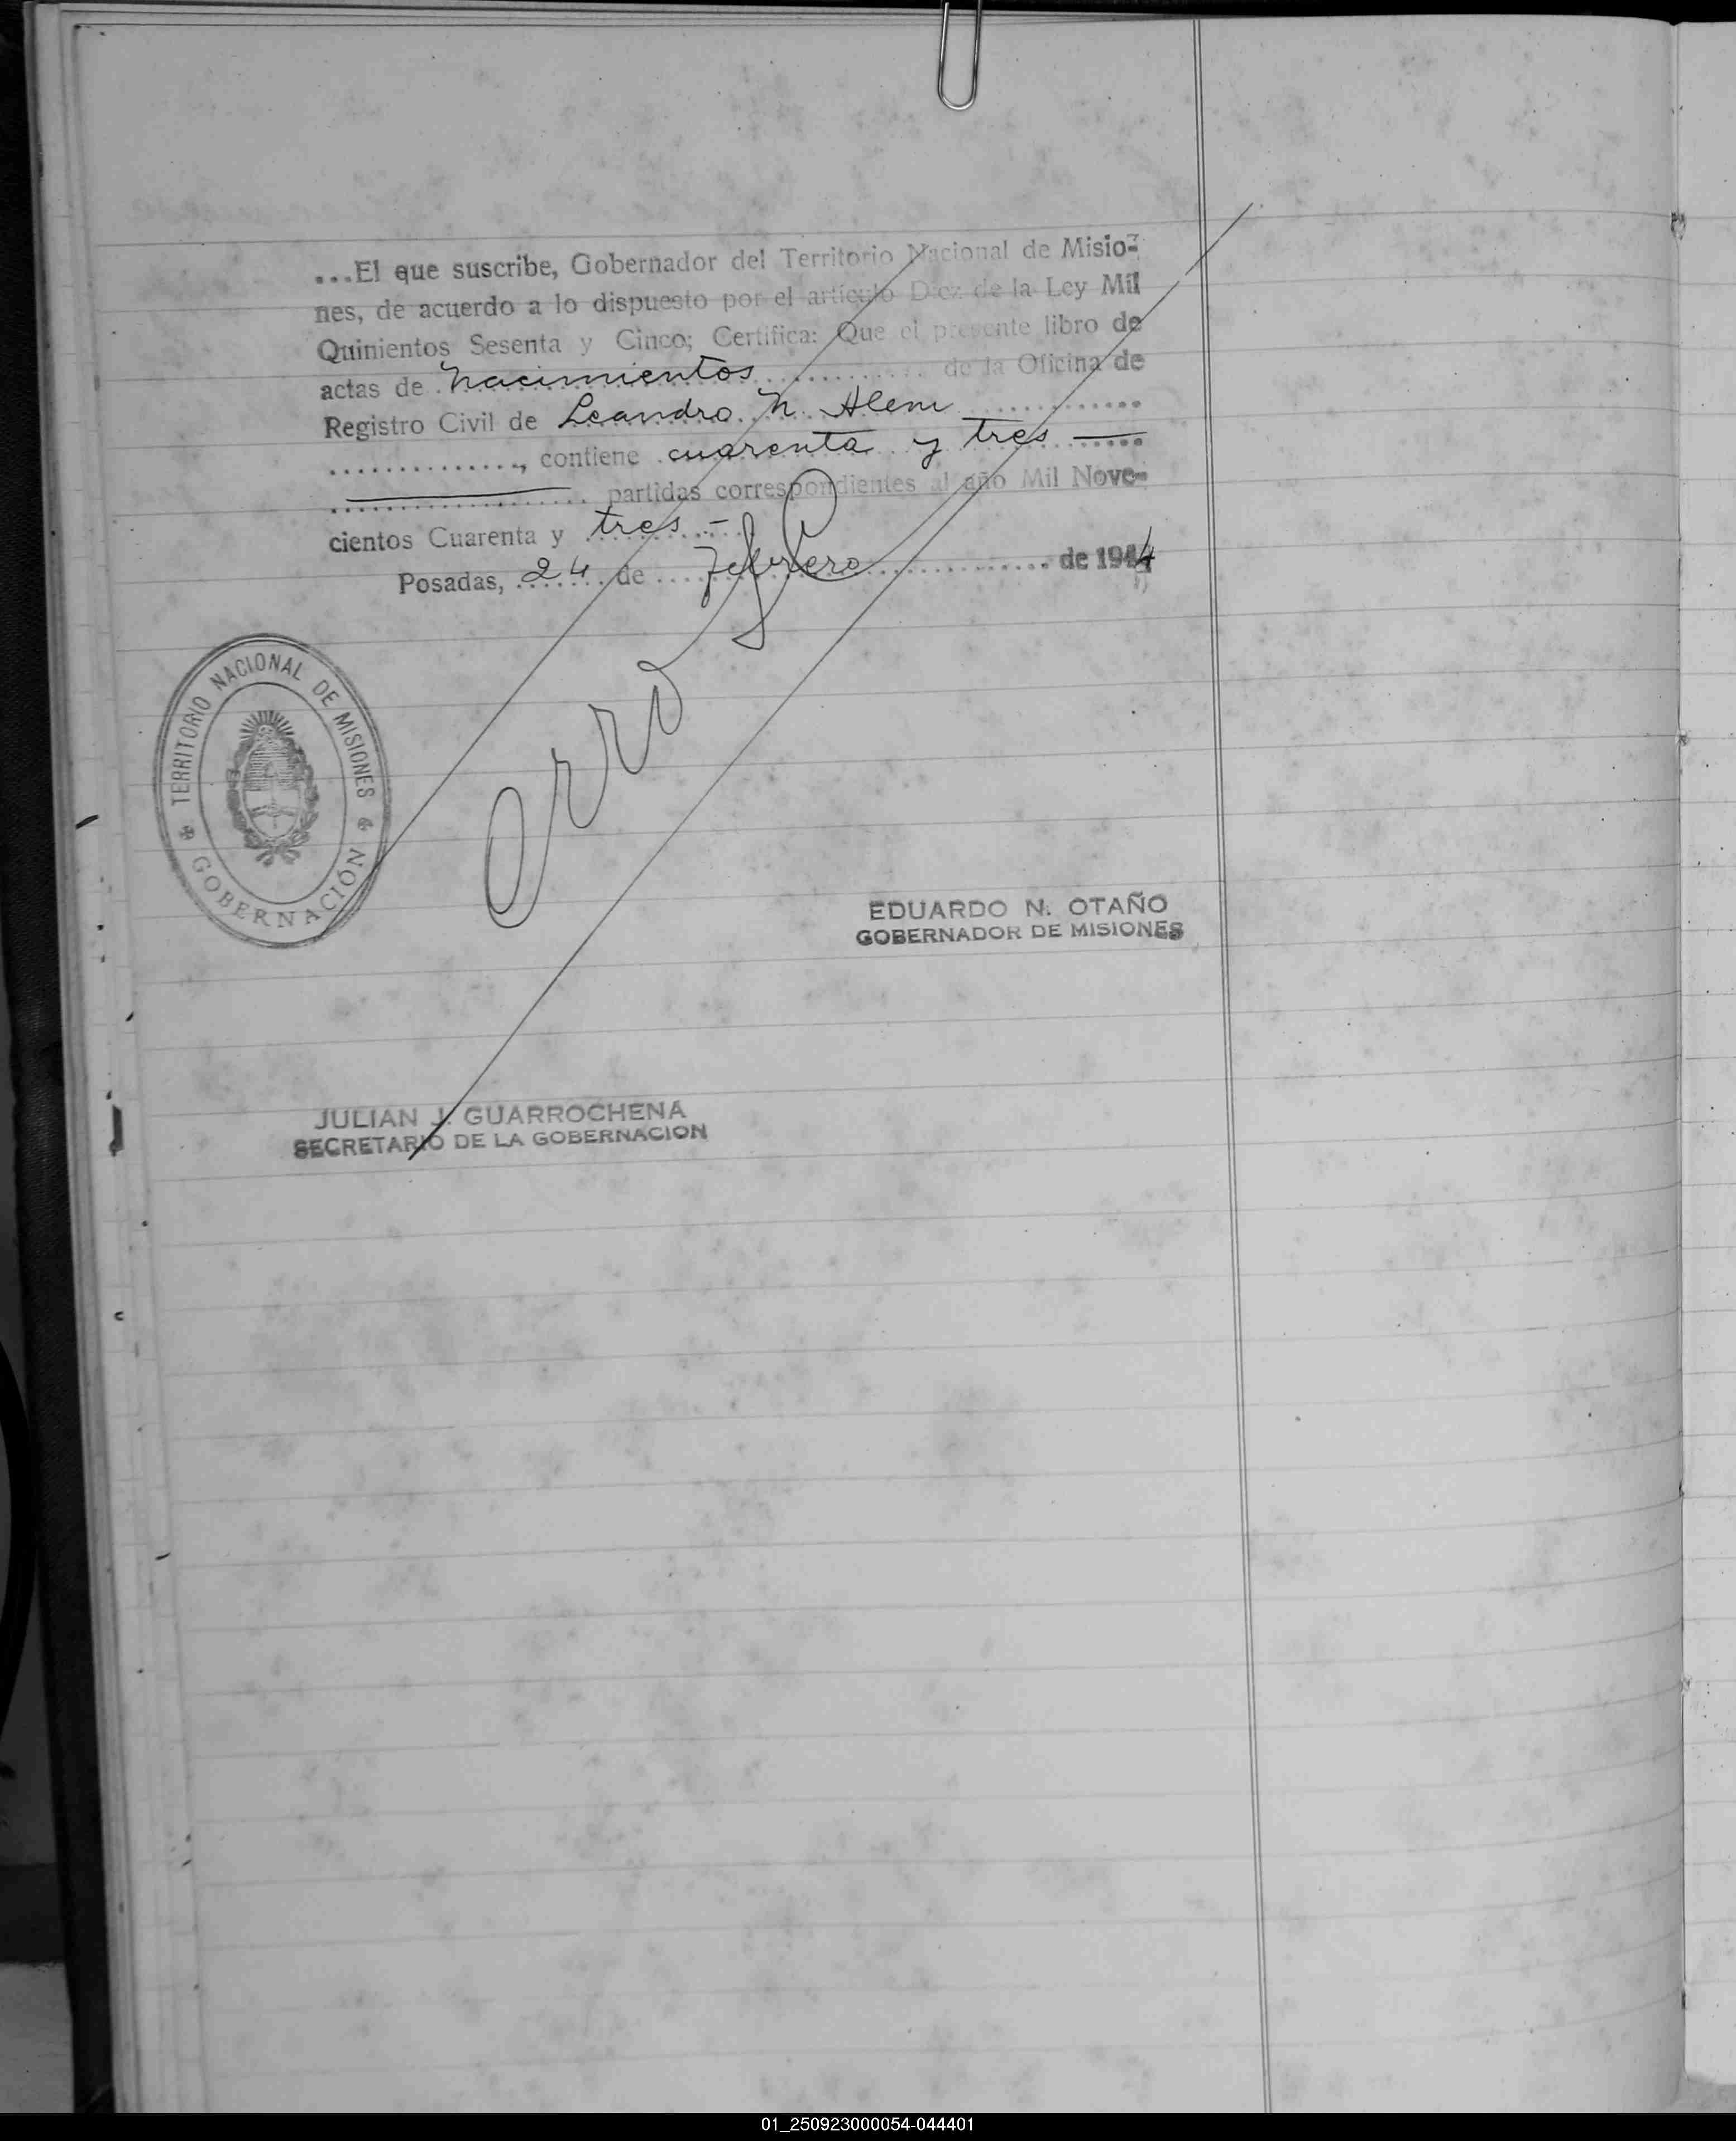 ...El que suscribe, Gobernador del Territorio Nacional de Misio-
nes, de acuerdo a lo dispuesto por el artículo Diez de la Ley Mil
Quinientos Sesenta y Cinco; Certifica: Que el presente libro de
actas de Nacimientos de la Oficina de
Registro Civil de Leandro N. Alem
, contiene cuarenta y tres
partidas correspondientes al año Mil Nove-
cientos Cuarenta y tres
Posadas, 24 de Febrero de 1944
Error
TERRITORIO NACIONAL DE MISIONES
GOBERNACIÓN
EDUARDO N. OTAÑO
GOBERNADOR DE MISIONES
JULIAN J. GUARROCHENA
SECRETARIO DE LA GOBERNACION
01_250923000054-044401